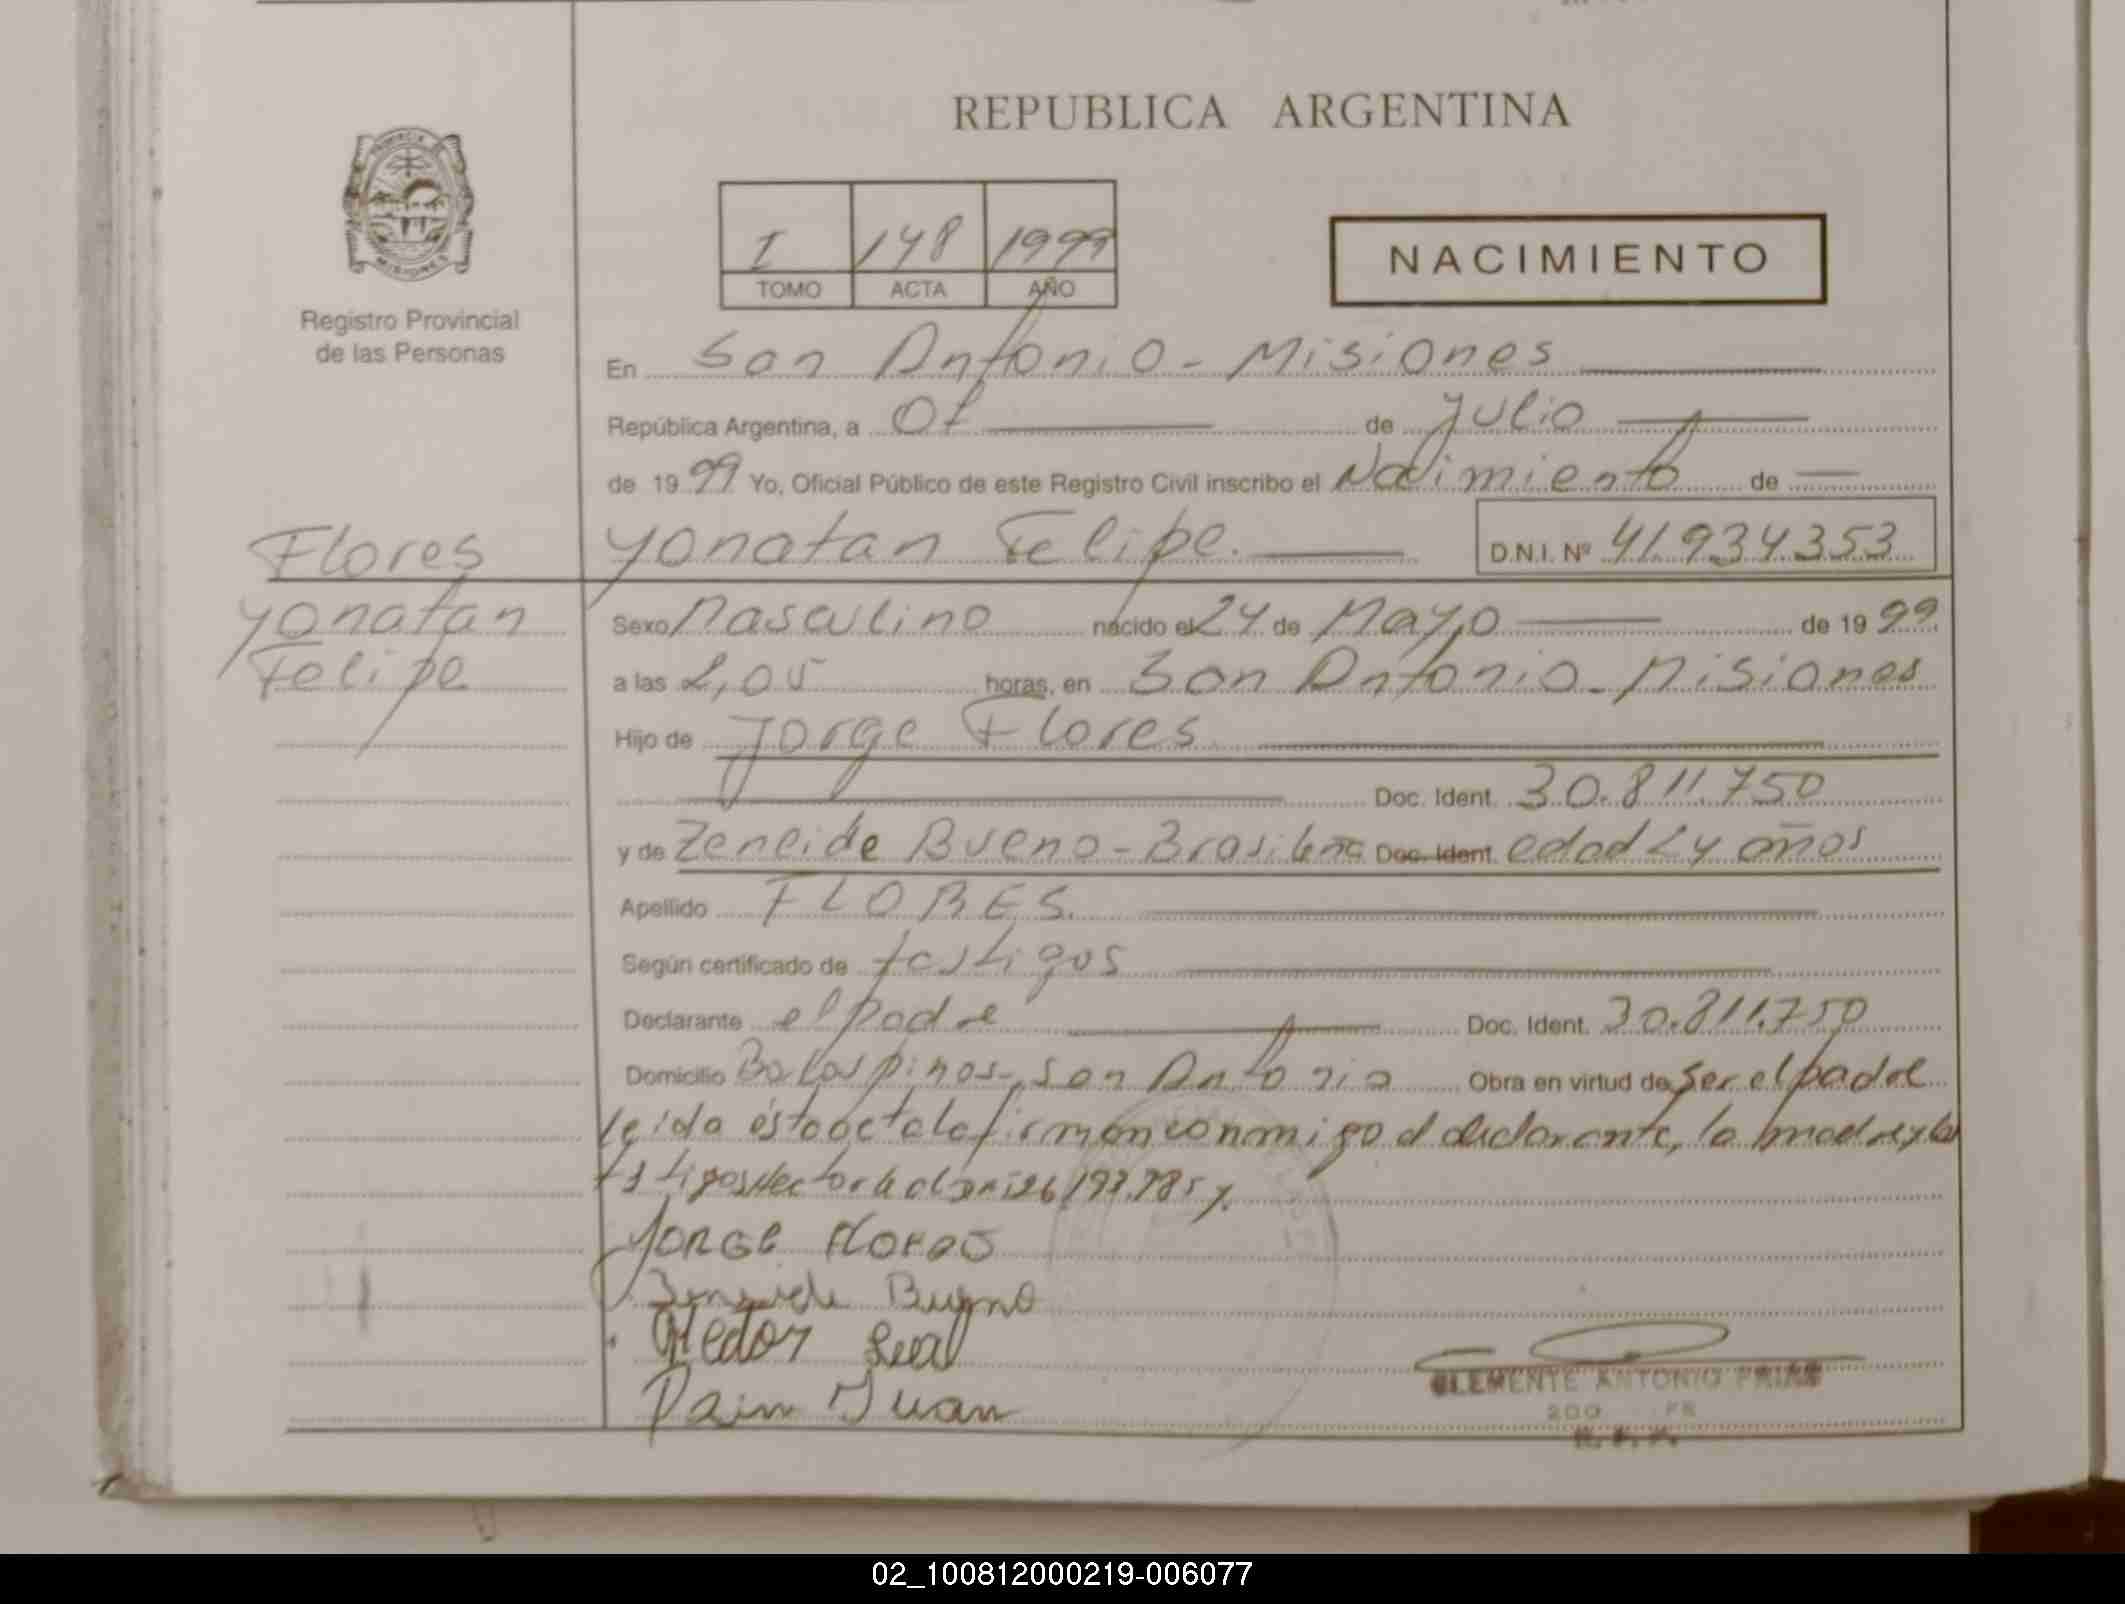 REPUBLICA ARGENTINA
PROVINCIA DE
MISIONES
Registro Provincial
de las Personas
I 148 1999
TOMO ACTA AÑO
NACIMIENTO
En San Antonio - Misiones
República Argentina, a 07 de Julio
de 1999 Yo, Oficial Público de este Registro Civil inscribo el Nacimiento de
Yonatan Felipe. D.N.I. Nº 41.934.353
Flores
Yonatan
Felipe
Sexo Masculino nacido el 24 de Mayo de 1999
a las 2,05 horas, en San Antonio - Misiones
Hijo de Jorge Flores
Doc. Ident. 30.811.750
y de Zeneide Bueno - Brasileña Doc. Ident. edad 24 años
Apellido FLORES.
Según certificado de testigos
Declarante el padre Doc. Ident. 30.811.750
Domicilio Bo Los pinos - San Antonio Obra en virtud de ser el padre
leida ésta acta la firman conmigo el declarante, la madre y los
testigos Hector
Jorge Flores
Bueno
Hedor Leal
Juan
CLEMENTE ANTONIO FRIAS
02_100812000219-006077